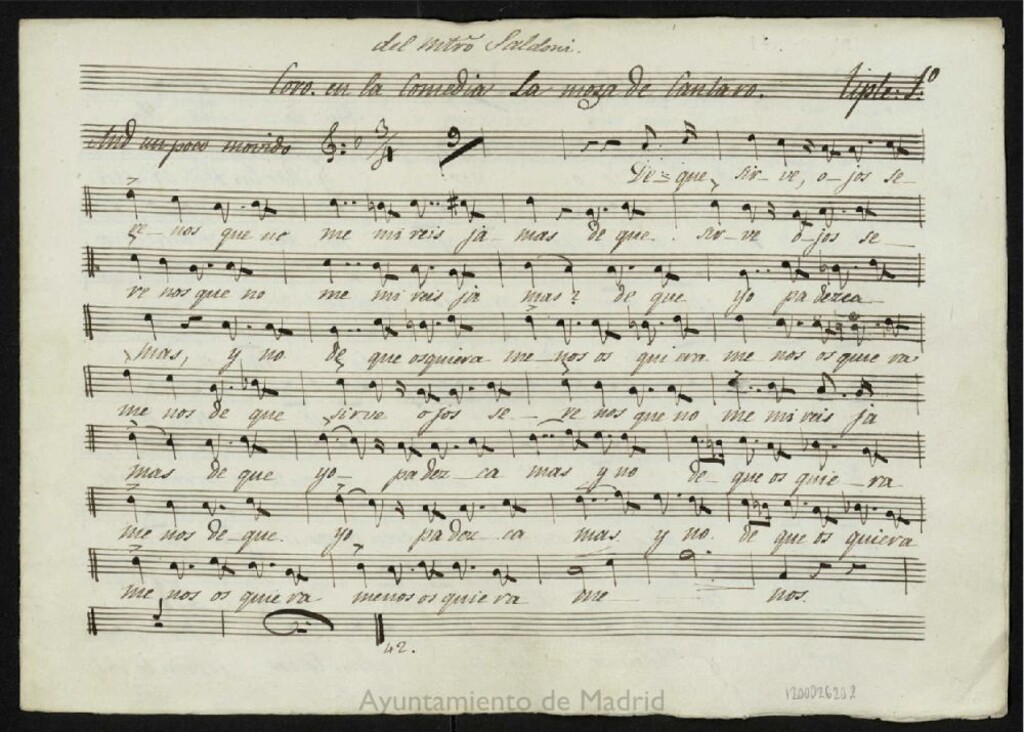 del mtrō Saldoni.
Coro. en la Comedia La moza de Cantaro. tiple. 1.º
And un poco movido 3/4 9
De que, sir-ve, o-jos se-
re-nos que no me mi reis ja-mas de que. sir-ve o-jos se-
re nos que no me mi reis ja mas? de que yo padezca
mas, y no de que os quiera me nos os qui era me nos os quie ra
me nos de que sirve ojos se-re nos que no me mi reis ja
mas de que yo- padez-ca mas y no de- que os quie-ra
me nos de-que. yo padez-ca mas. y no. de que os quiera
me nos os quie ra menos os quie ra me nos.
42.
Ayuntamiento de Madrid
1200026202